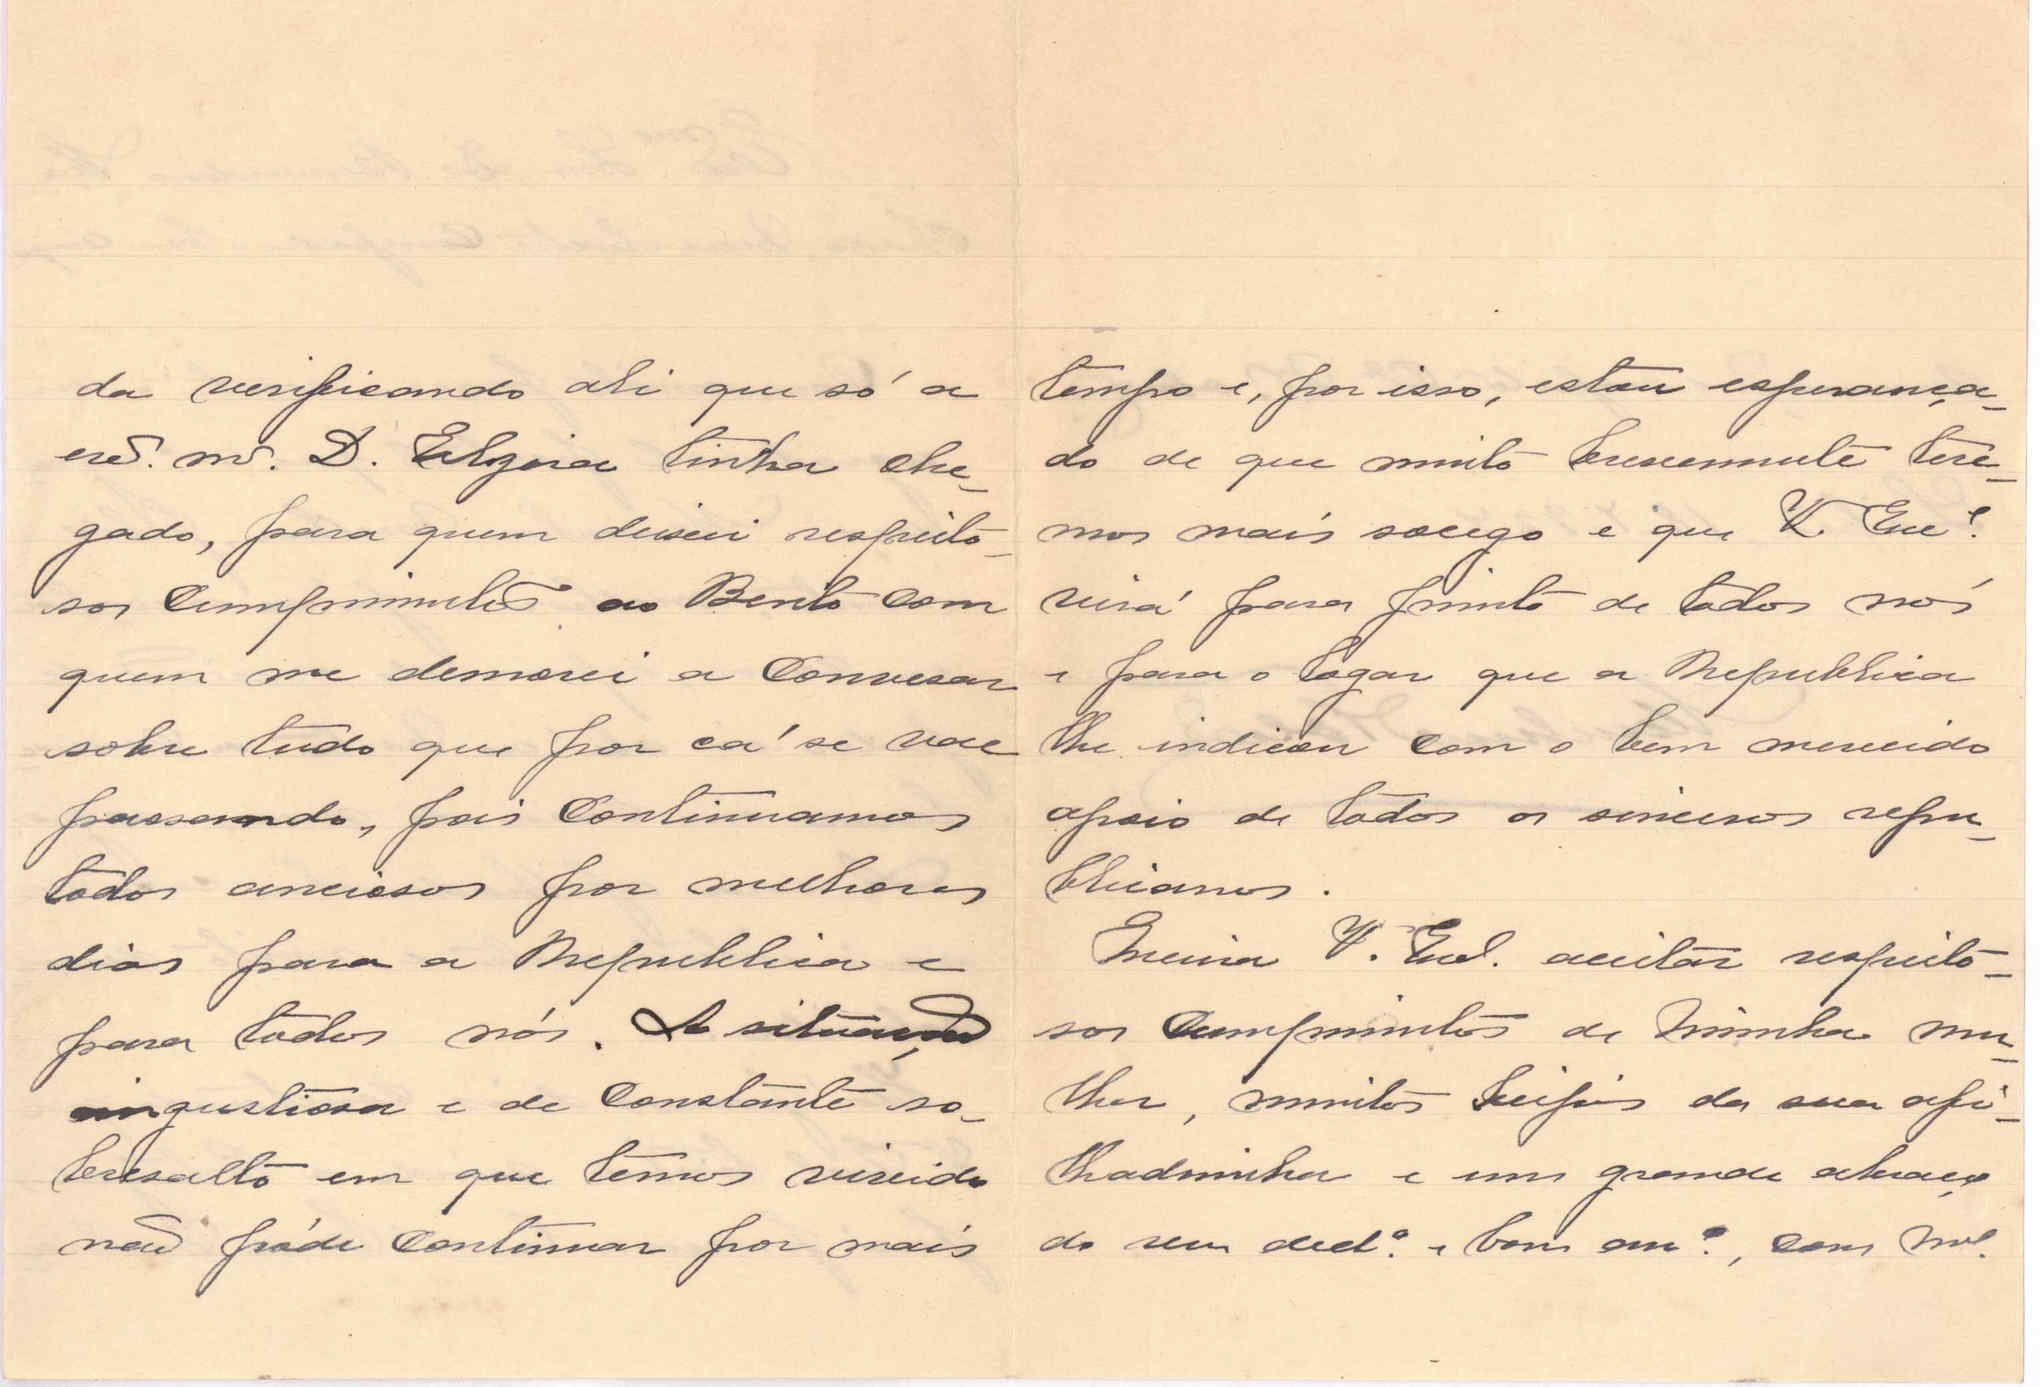 da verificando ali que só a
D. Elzira tinha che-
gado, para quem deixei respeito-
sos cumprimentos ao Bento com
quem me demorei a conversar
sobre tudo que por cá se vae
passando, pois continuamos
todos anciosos por melhores
dias para a Republica e
para todos nós. A situação
angustiosa e de constante so-
bresalto em que temos vivido
não póde continuar por mais
tempo e, por isso, estou esperança-
do de que muito brevemente tere-
mos mais socego e que V. Exc.ª
virá para junto de todos nós
e para o logar que a Republica
lhe indicou com o bem merecido
apoio de todos os sinceros repu-
blicanos.
Queira V. Exc.ª aceitar respeito-
sos cumprimentos de minha mu-
lher, muitos beijos da sua afi-
lhadinha e um grande abraço
do seu ded.º e bom am.º, com